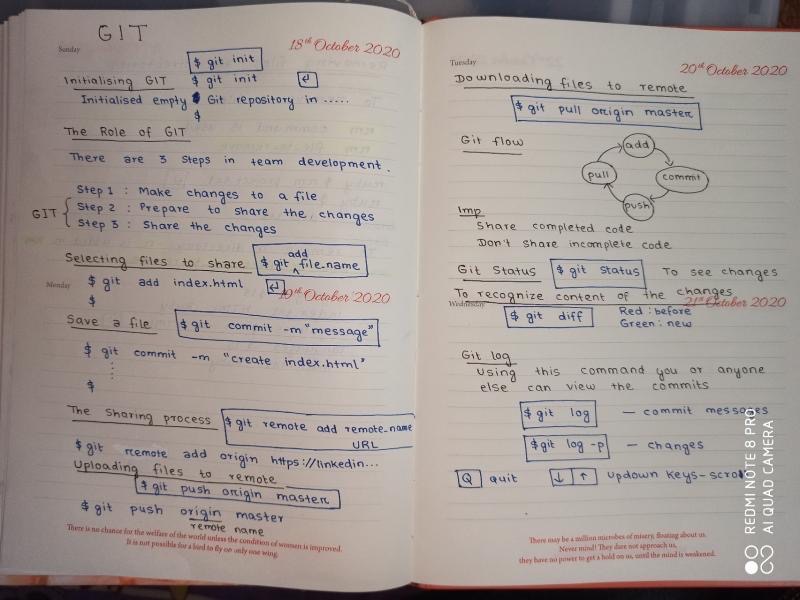 GIT
Sunday
18th October 2020
$ git init
Initialising GIT $ git init ↵
Initialised empty Git repository in .....
$
The Role of GIT
There are 3 steps in team development.
GIT { Step 1 : Make changes to a file
Step 2 : Prepare to share the changes
Step 3 : Share the changes
Selecting files to share $ git add file_name
$ git add index.html ↵
Monday
19th October 2020
$
Save a file $ git commit -m "message"
$ git commit -m "create index.html"
$
The sharing process $ git remote add remote_name
URL
$ git remote add origin https://linkedin...
Uploading files to remote
$ git push origin master
$ git push origin master
remote name
There is no chance for the welfare of the world unless the condition of women is improved.
It is not possible for a bird to fly on only one wing.
Tuesday
20th October 2020
Downloading files to remote
$ git pull origin master
Git flow
add
pull
commit
push
Imp
Share completed code
Don't share incomplete code
Git Status $ git status To see changes
To recognize content of the changes
Wednesday
21st October 2020
$ git diff Red : before
Green : new
Git log
Using this command you or anyone
else can view the commits
$ git log — commit messages
$ git log -p — changes
Q quit ↓ ↑ updown keys-scro
There may be a million microbes of misery, floating about us.
Never mind! They dare not approach us,
they have no power to get a hold on us, until the mind is weakened.
REDMI NOTE 8 PRO
AI QUAD CAMERA